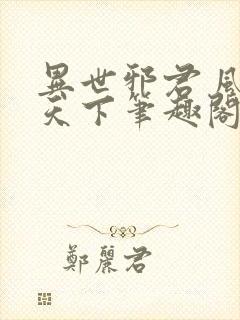 異世邪君風
天下筆趣閣
鄭麗君